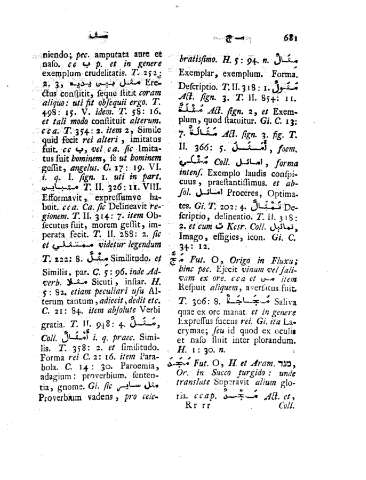 681
niendo; pec. amputata aure et
naso. cc ب p. et in genere
exemplum crudelitatis. T. 252.
2. 3, مثل بين يديه Ere-
ctus constitit, seque stitit coram
aliquo: uti fit obsequii ergo. T.
498: 15. V. idem. T. 58: 16.
et tali modo constituit alterum.
cca. T. 354: 2. item 2, Simile
quid fecit rei alteri, imitatus
fuit. cc ب, vel ca. sic Imita-
tus fuit hominem, se ut hominem
gessit, angelus. C. 17: 19. VI.
i. q. I. sign. 1. uti in part.
T. II. 326: 11. VIII.
Efformavit, expressumve ha-
buit. cca. Ca. sic Delineavit re-
gionem. T. II. 314: 7. item Ob-
secutus fuit, morem gessit, im-
perata fecit. T. II. 288: 2. sic
et videtur legendum
T. 222: 8. مثل Similitudo. et
Similis, par. C. 5: 96. inde Ad-
verb. مثلا Sicuti, instar. H.
5: 82. etiam peculiari usu Al-
terum tantum, adiecit, dedit etc.
C. 21: 84. item absolute Verbi
gratia. T. II. 948: 4. مثل,
Coll. أمثال i. q. praec. Simi-
lis. T. 358: 2. et similitudo.
Forma rei C. 2: 16. item Para-
bola. C. 14: 30. Paroemia,
adagium: proverbium. senten-
tia, gnome. Gi. sic مثل ساير
Proverbium vadens, pro cele-
bratissimo. H. 5: 94. n. مثال
Exemplar, exemplum. Forma.
Descriptio. T. II. 318: 1.
Act. sign. 3. T. II. 854: 11.
Act. sign. 2, et Exem-
plum, quod statuitur. Gi. C. 13:
7. Act. sign. 3. fig. T.
II. 366: 5. أمثل, foem.
Coll. اماثل, forma
intens. Exemplo laudis conspi-
cuus, praestantissimus. et ab-
sol. اماثل Proceres, Optima-
tes. Gi. T. 202: 4. تمثال De-
scriptio, delineatio. T. II. 318:
2. et cum ت Kesr. Coll. تماثيل,
Imago, effigies, icon. Gi. C.
34: 12.
مج Fut. O, Origo in Fluxu;
hinc pec. Ejecit vinum vel sali-
vam ex ore. cca et من item
Respuit aliquem, aversitus fuit.
T. 306: 8. Saliva
quae ex ore manat. et in genere
Expressus succus rei. Gi. ita La-
crymae; seu id quod ex oculis
et naso fluit inter plorandum.
H. 1: 30. n.
مجد Fut. O, H. et Aram. מגד,
Or. in Succo turgido: unde
translate Superavit alium glo-
ria. ccap. Act. et,
Rr rr
Coll.